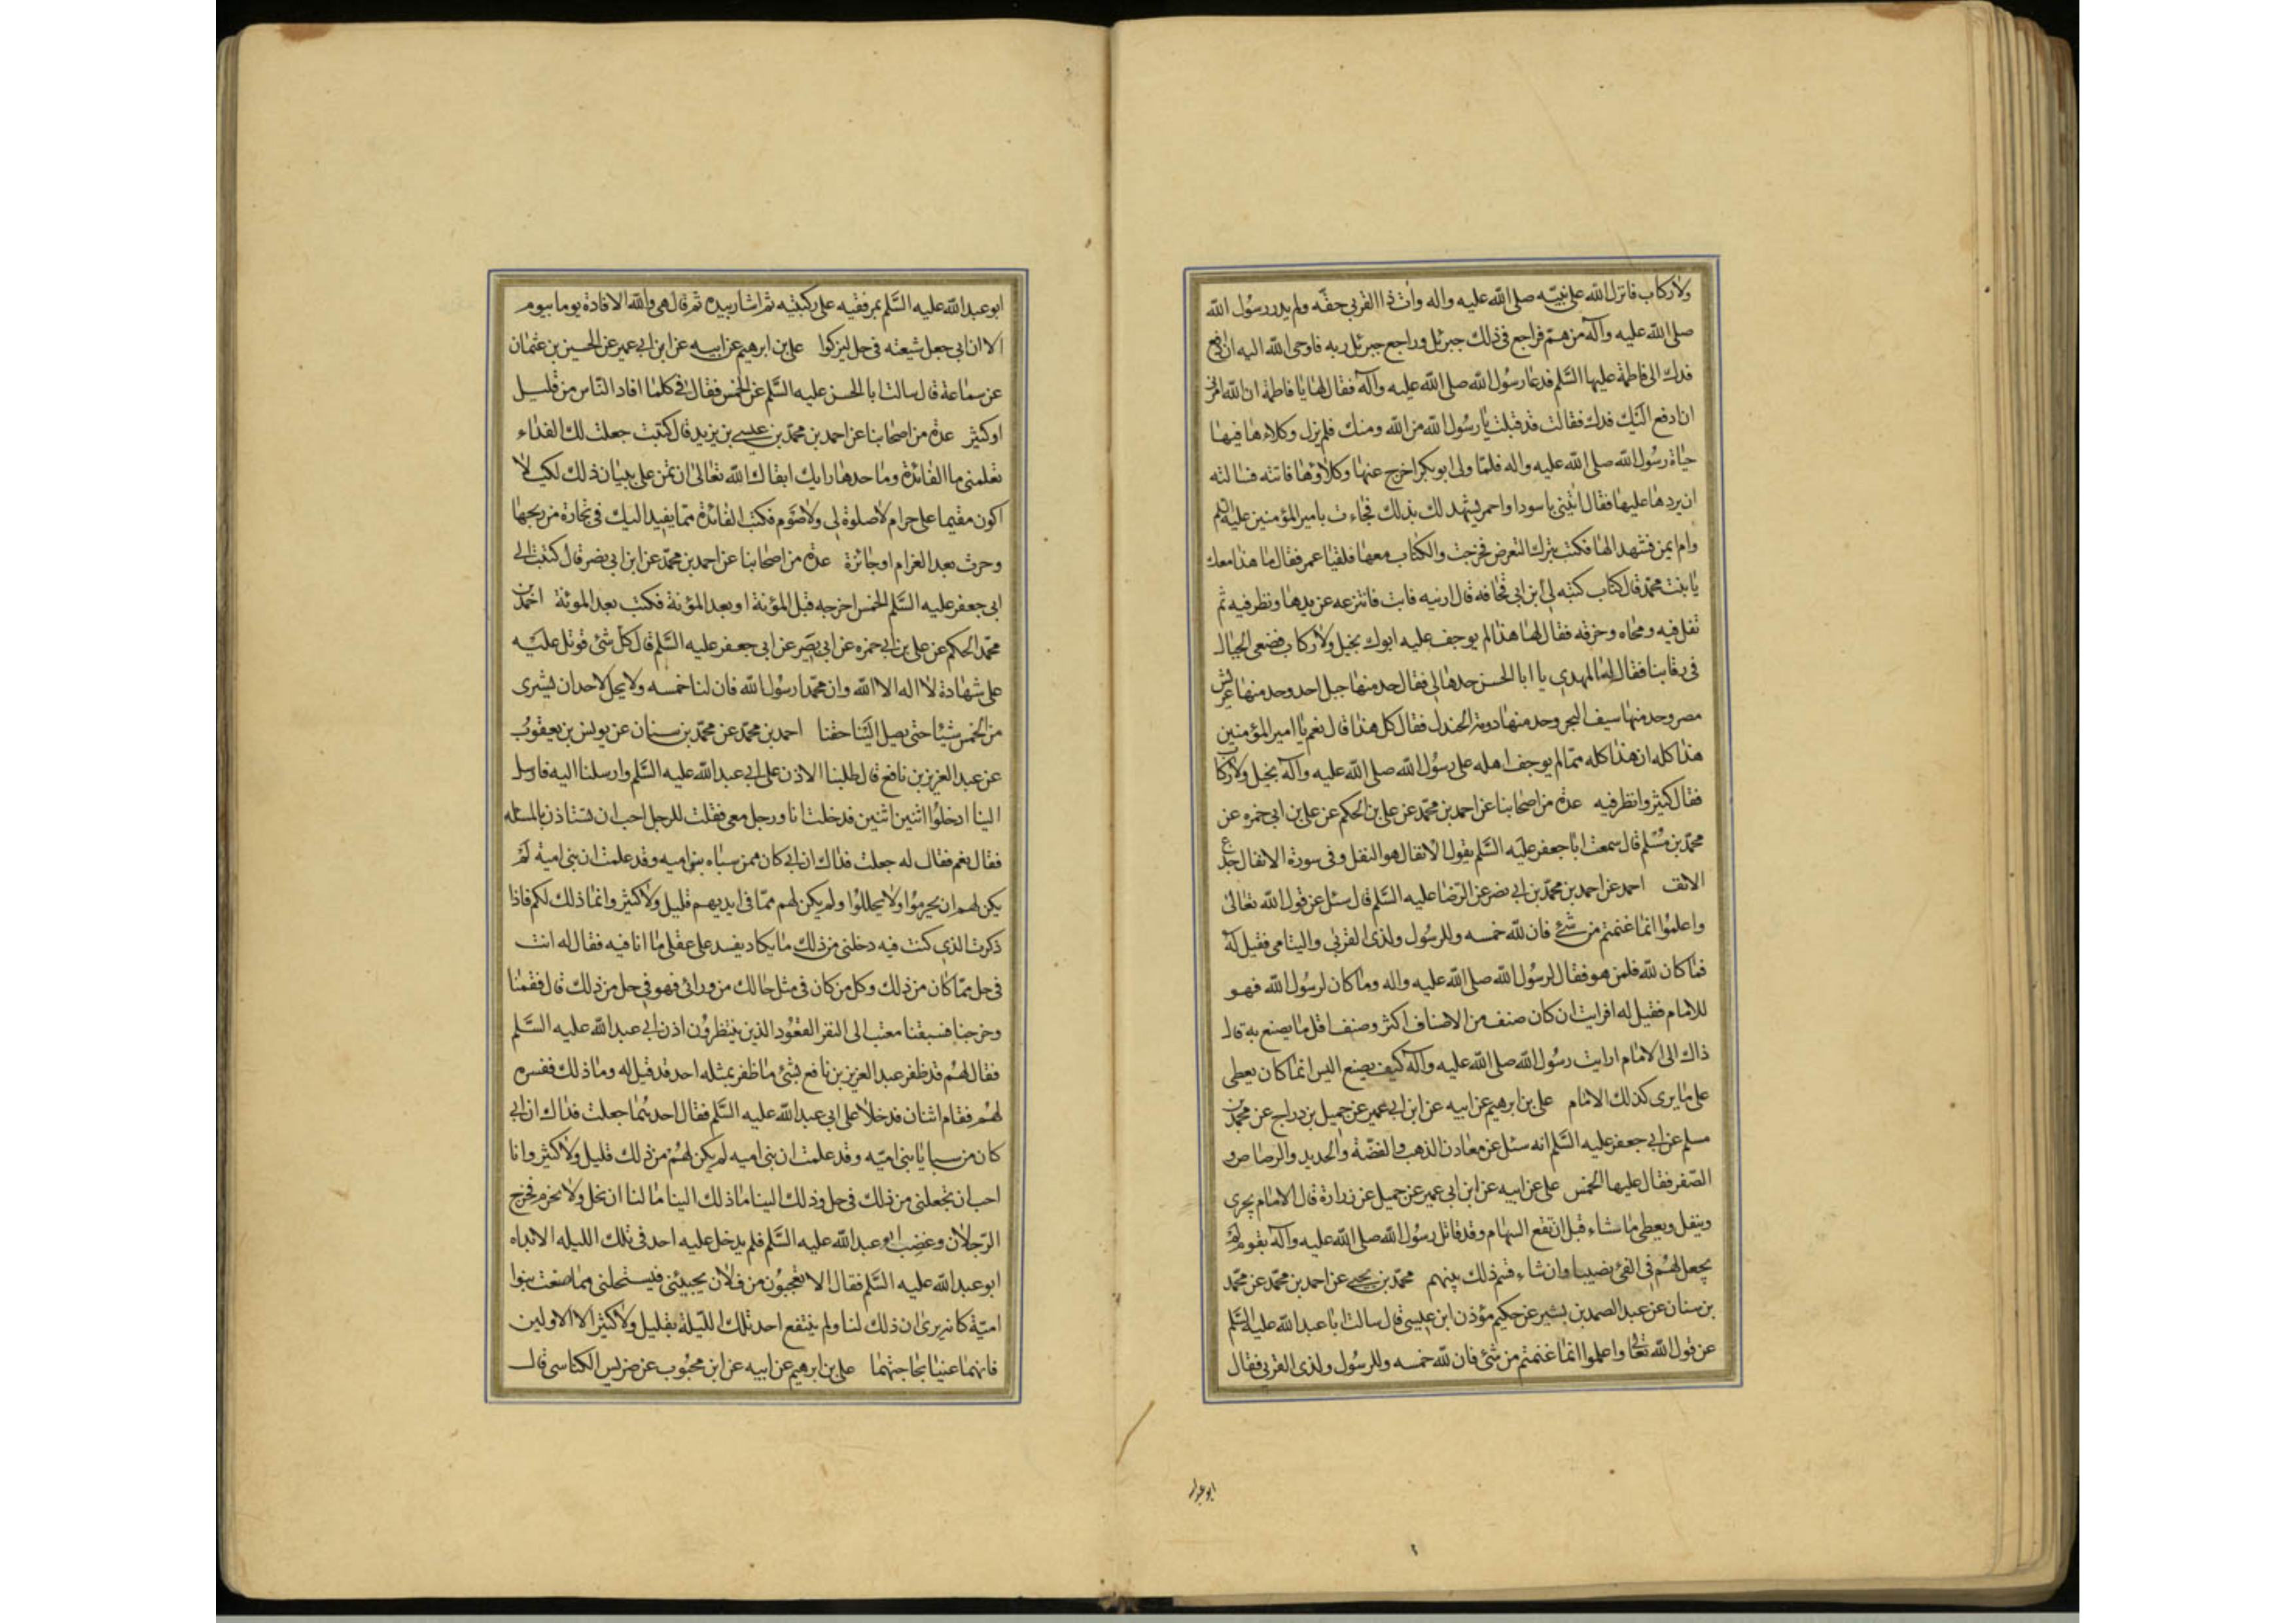 ولا ركاب فانزل الله على نبيه صلى الله عليه واله وات ذا القربى حقه ولم يدر رسول الله
صلى الله عليه وآله من هم فراجع فى ذلك جبرئل وراجع جبرئل ربه فاوحى الله اليه ان ادفع
فدك الى فاطمة عليها السلم فدعا رسول الله صلى الله عليه وآله فقال لها يا فاطمة ان الله امرنى
ان ادفع اليك فدك فقالت قد قبلت يا رسول الله من الله ومنك فلم يزل وكلاءها فيها
حياة رسول الله صلى الله عليه واله فلما ولى ابو بكر اخرج عنها وكلاؤها فاتته فسالته
ان يردها عليها فقال ائتينى باسود او احمر يشهد لك بذلك فجاءت بامير المؤمنين عليه السلم
وام ايمن فشهد الها فكتب بترك التعرض فخرجت والكتاب معها فلقيها عمر فقال ما هذا معك
يا بنت محمد قال كتاب كتبه لى ابن ابى قحافه قال ارنيه فابت فانتزعه عن يدها ونظر فيه ثم
تفل فيه ومحاه وخرقه فقال لها هذا لم يوجف عليه ابوك بخيل ولا ركاب فضعى الجبال
فى رقابنا فقال له المهدى يا ابا الحسن حدها الى فقال حد منها جبل احد وحد منها عريش
مصر وحد منها سيف البحر وحد منها دومة الجندل فقال كل هذا قال نعم يا امير المؤمنين
هذا كله ان هذا كله مما لم يوجف اهله على رسول الله صلى الله عليه وآله بخيل ولا ركاب
فقال كثير وانظر فيه عدة من اصحابنا عن احمد بن محمد عن على بن الحكم عن على بن ابى حمزه عن
محمد بن مسلم قال سمعت ابا جعفر عليه السلم يقول الانفال هو النفل وفى سورة الانفال جدع
الانف احمد عن احمد بن محمد بن ابى نصر عن الرضا عليه السلم قال سئل عن قول الله تعالى
واعلموا انما غنمتم من شئ فان لله خمسه وللرسول ولذى القربى واليتامى فقيل له
فما كان لله فلمن هو فقال لرسول الله صلى الله عليه واله وما كان لرسول الله فهو
للامام فقيل له افرايت ان كان صنف من الاصناف اكثر وصنف اقل ما يصنع به قال
ذاك الى الامام ارايت رسول الله صلى الله عليه وآله كيف يصنع اليس انما كان يعطى
على ما يرى كذلك الامام على بن ابرهيم عن ابيه عن ابن ابى عمير عن جميل بن دراج عن محمد بن
مسلم عن ابى جعفر عليه السلم انه سئل عن معادن الذهب والفضة والحديد والرصاص و
الصفر فقال عليها الخمس على عن ابيه عن ابن ابى عمير عن جميل عن زرارة قال الامام يجرى
وينفل ويعطى ما شاء قبل ان تقع السهام وقد قاتل رسول الله صلى الله عليه وآله بقوم لم
يجعل لهم فى الفئ نصيبا وان شاء قسم ذلك بينهم محمد بن يحيى عن احمد بن محمد عن محمد
بن سنان عن عبد الصمد بن بشير عن حكيم مؤذن ابن عيسى قال سالت ابا عبد الله عليه السلم
عن قول الله تعالى واعلموا انما غنمتم من شئ فان لله خمسه وللرسول ولذى القربى فقال
ابو عبد الله
ابو عبد الله عليه السلم بمرفقيه على ركبتيه ثم اشار بيده ثم قال هى والله الافادة يوما بيوم
الا ان ابى جعل شيعته فى حل ليزكوا على بن ابرهيم عن ابيه عن ابن ابى عمير عن الحسين بن عثمان
عن سماعة قال سالت ابا الحسن عليه السلم عن الخمس فقال فى كلما افاد الناس من قليل
او كثير عدة من اصحابنا عن احمد بن محمد بن عيسى بن يزيد قال كتبت جعلت لك الفداء
تعلمنى ما الفائدة وما حدها رايك ابقاك الله تعالى ان تمن على ببيان ذلك لكيلا
اكون مقيما على حرام لا صلوة لى ولا صوم فكتب الفائدة مما يفيد اليك فى تجارة من ربحها
وحرث بعد الغرام او جائزة عدة من اصحابنا عن احمد بن محمد عن ابن ابى نصر قال كتبت الى
ابى جعفر عليه السلم الخمس اخرجه قبل المؤنة او بعد المؤنة فكتب بعد المونة احمد بن
محمد الحكم عن على بن ابى حمزه عن ابى بصير عن ابى جعفر عليه السلم قال كل شئ قوتل عليه
على شهادة لا اله الا الله وان محمدا رسول الله فان لنا خمسه ولا يحل لاحد ان يشترى
من الخمس شيئا حتى يصل الينا حقنا احمد بن محمد عن محمد بن سنان عن يونس بن يعقوب
عن عبد العزيز بن نافع قال طلبنا الاذن على ابى عبد الله عليه السلم وارسلنا اليه فارسل
الينا ادخلوا اثنين اثنين فدخلت انا ورجل معى فقلت للرجل احب ان تستاذن بالمسئله
فقال نعم فقال له جعلت فداك ان ابى كان ممن سباه بنو اميه وقد علمت ان بنى امية لم
يكن لهم ان يحرموا ولا يحللوا ولم يكن لهم مما فى ايديهم قليل ولا كثير وانما ذلك لكم فاذا
ذكرت الذى كنت فيه دخلنى من ذلك ما يكاد يفسد على عقلى ما انا فيه فقال له انت
فى حل مما كان من ذلك وكل من كان فى مثل حالك من ورائى فهو فى حل من ذلك قال فقمنا
وخرجنا فسبقنا معتب الى النفر القعود الذين ينتظرون اذن ابى عبد الله عليه السلم
فقال لهم قد ظفر عبد العزيز بن نافع بشئ ما ظفر بمثله احد قد قيل له وما ذلك ففسره
لهم فقام اثنان فدخلا على ابى عبد الله عليه السلم فقال احدهما جعلت فداك ان ابى
كان من سبايا بنى اميه وقد علمت ان بنى اميه لم يكن لهم من ذلك قليل ولا كثير وانا
احب ان تجعلنى من ذلك فى حل وذلك الينا ما ذلك الينا ما لنا ان نحل ولا نحرم فخرج
الرجلان وغضب ابو عبد الله عليه السلم فلم يدخل عليه احد فى تلك الليله الا بداه
ابو عبد الله عليه السلم فقال الا تعجبون من فلان يجيئنى فيستحلنى مما صنعت بنوا
امية كانه يرى ان ذلك لنا ولم ينتفع احد تلك الليلة بقليل ولا كثير الا الاولين
فانهما عنيا بحاجتهما على بن ابرهيم عن ابيه عن ابن محبوب عن ضريس الكناسى قال